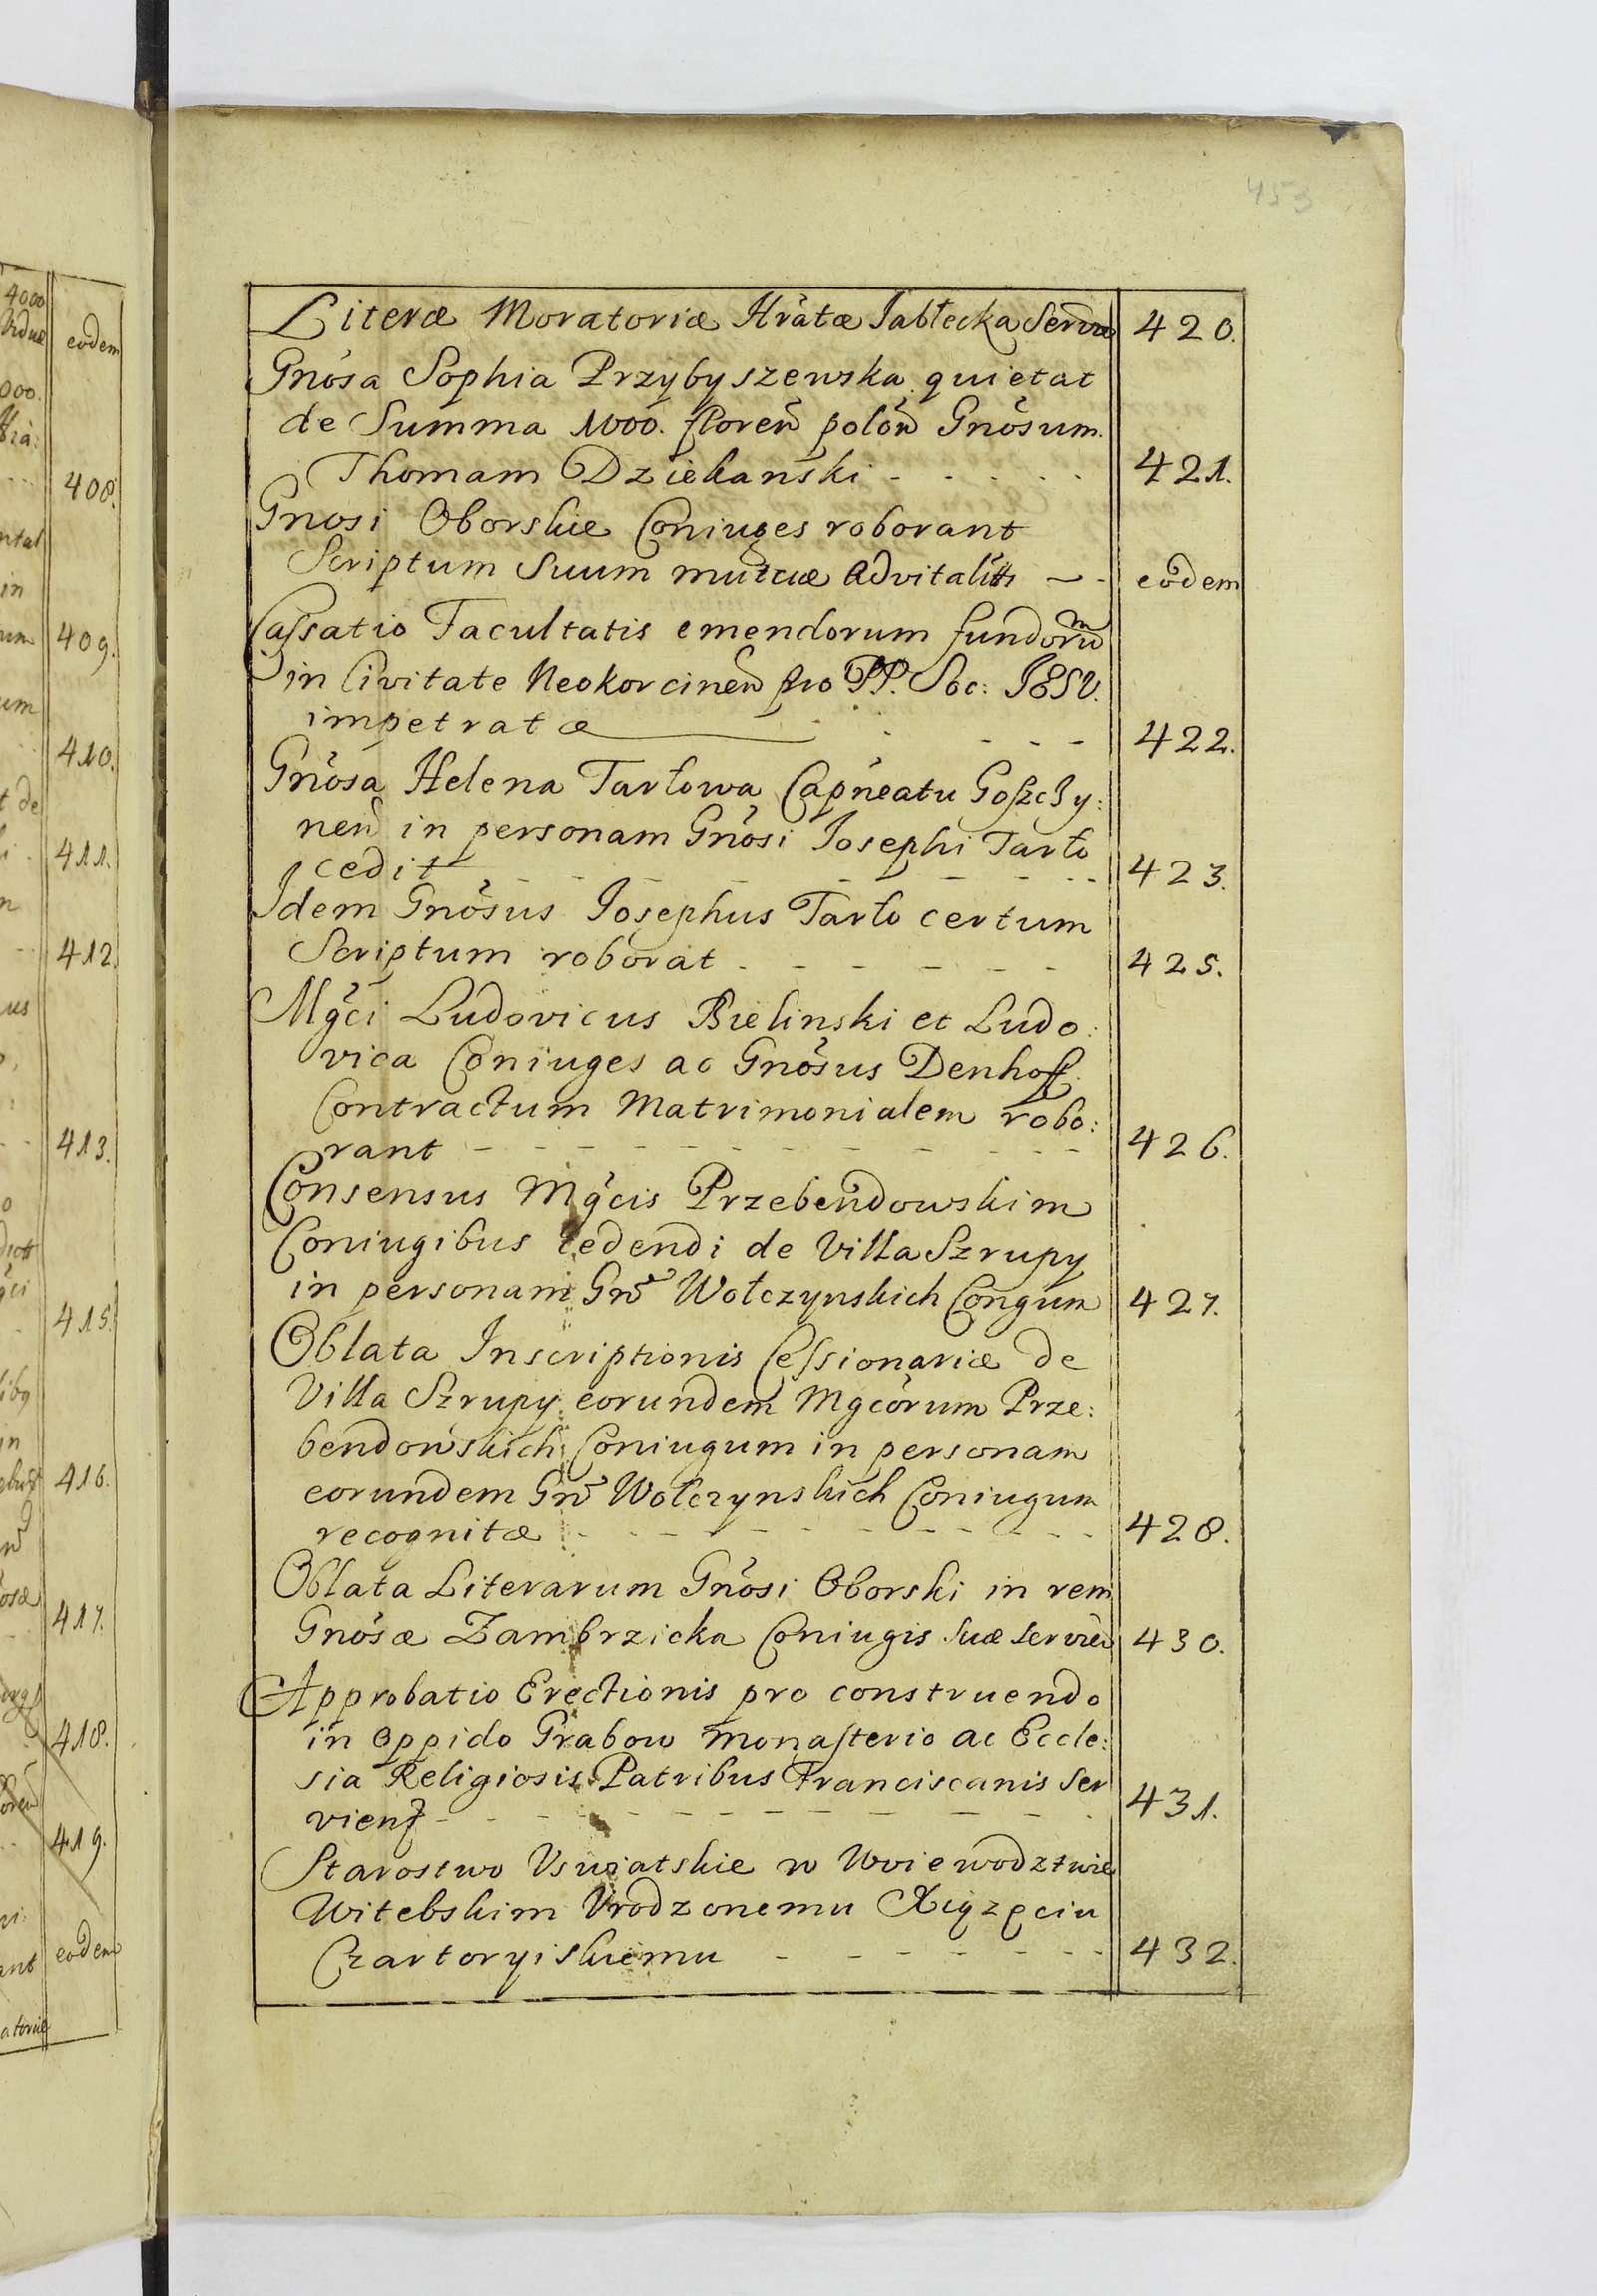 453
Literæ Moratoriæ Hrãtæ Jabłecka Servie 420.
Gnõsa Sophia Przybyszewska quietat
de Summa 1000. floreñ poloñ Gnõsum.
Thomam Dziekański - - - - - 421.
Gnosi Oborskie Coniuges roborant
Scriptum Suum mutuæ Advitalitt - - eodem
Cassatio Facultatis emendorum fundorum
in Civitate Neokorcineñ pro PP. Soc: JESV.
impetratæ - - - - 422.
Gnõsa Helena Tarłowa Capñeatu Goszczy:
neñ in personam Gnõsi Josephi Tarło
cedit - - - - - - - - 423.
Idem Gnõsus Josephus Tarło certum
Scriptum roborat - - - - - - 425.
Mgĉi Ludovicus Bielinski et Ludo:
vica Coniuges ac Gnõsus Denhoff.
Contractum Matrimonialem robo:
rant - - - - - - - - - - - - 426.
Consensus Mgĉis Przebendowskim
Coniugibus cedendi de Villa Szrupy
in personam Gñ Wołczynskich Congum 427.
Oblata Inscriptionis Cessionariæ de
Villa Szrupy eorundem Mgcõrum Prze:
bendowskich Coniugum in personam
eorundem Gñ Wołczynskich Coniugum
recognitæ - - - - - - - - - - 428.
Oblata Literarum Gnõsi Oborski in rem
Gnõsæ Zambrzicka Coniugis suæ servieñ 430.
Approbatio Erectionis pro construendo
in oppido Grabow monasterio ac Eccle:
sia Religiosis Patribus Franciscanis Ser
vienţ - - - - - - - - - - - 431.
Starostwo Vswiatskie w Woiewodztwie
Witebskim Vrodzonemu Xiążęciu
Czartoryiskiemu - - - - - - - 432.
4000
eodem
408.
409.
410.
411.
412.
413.
415.
416.
417.
418.
419.
eodem